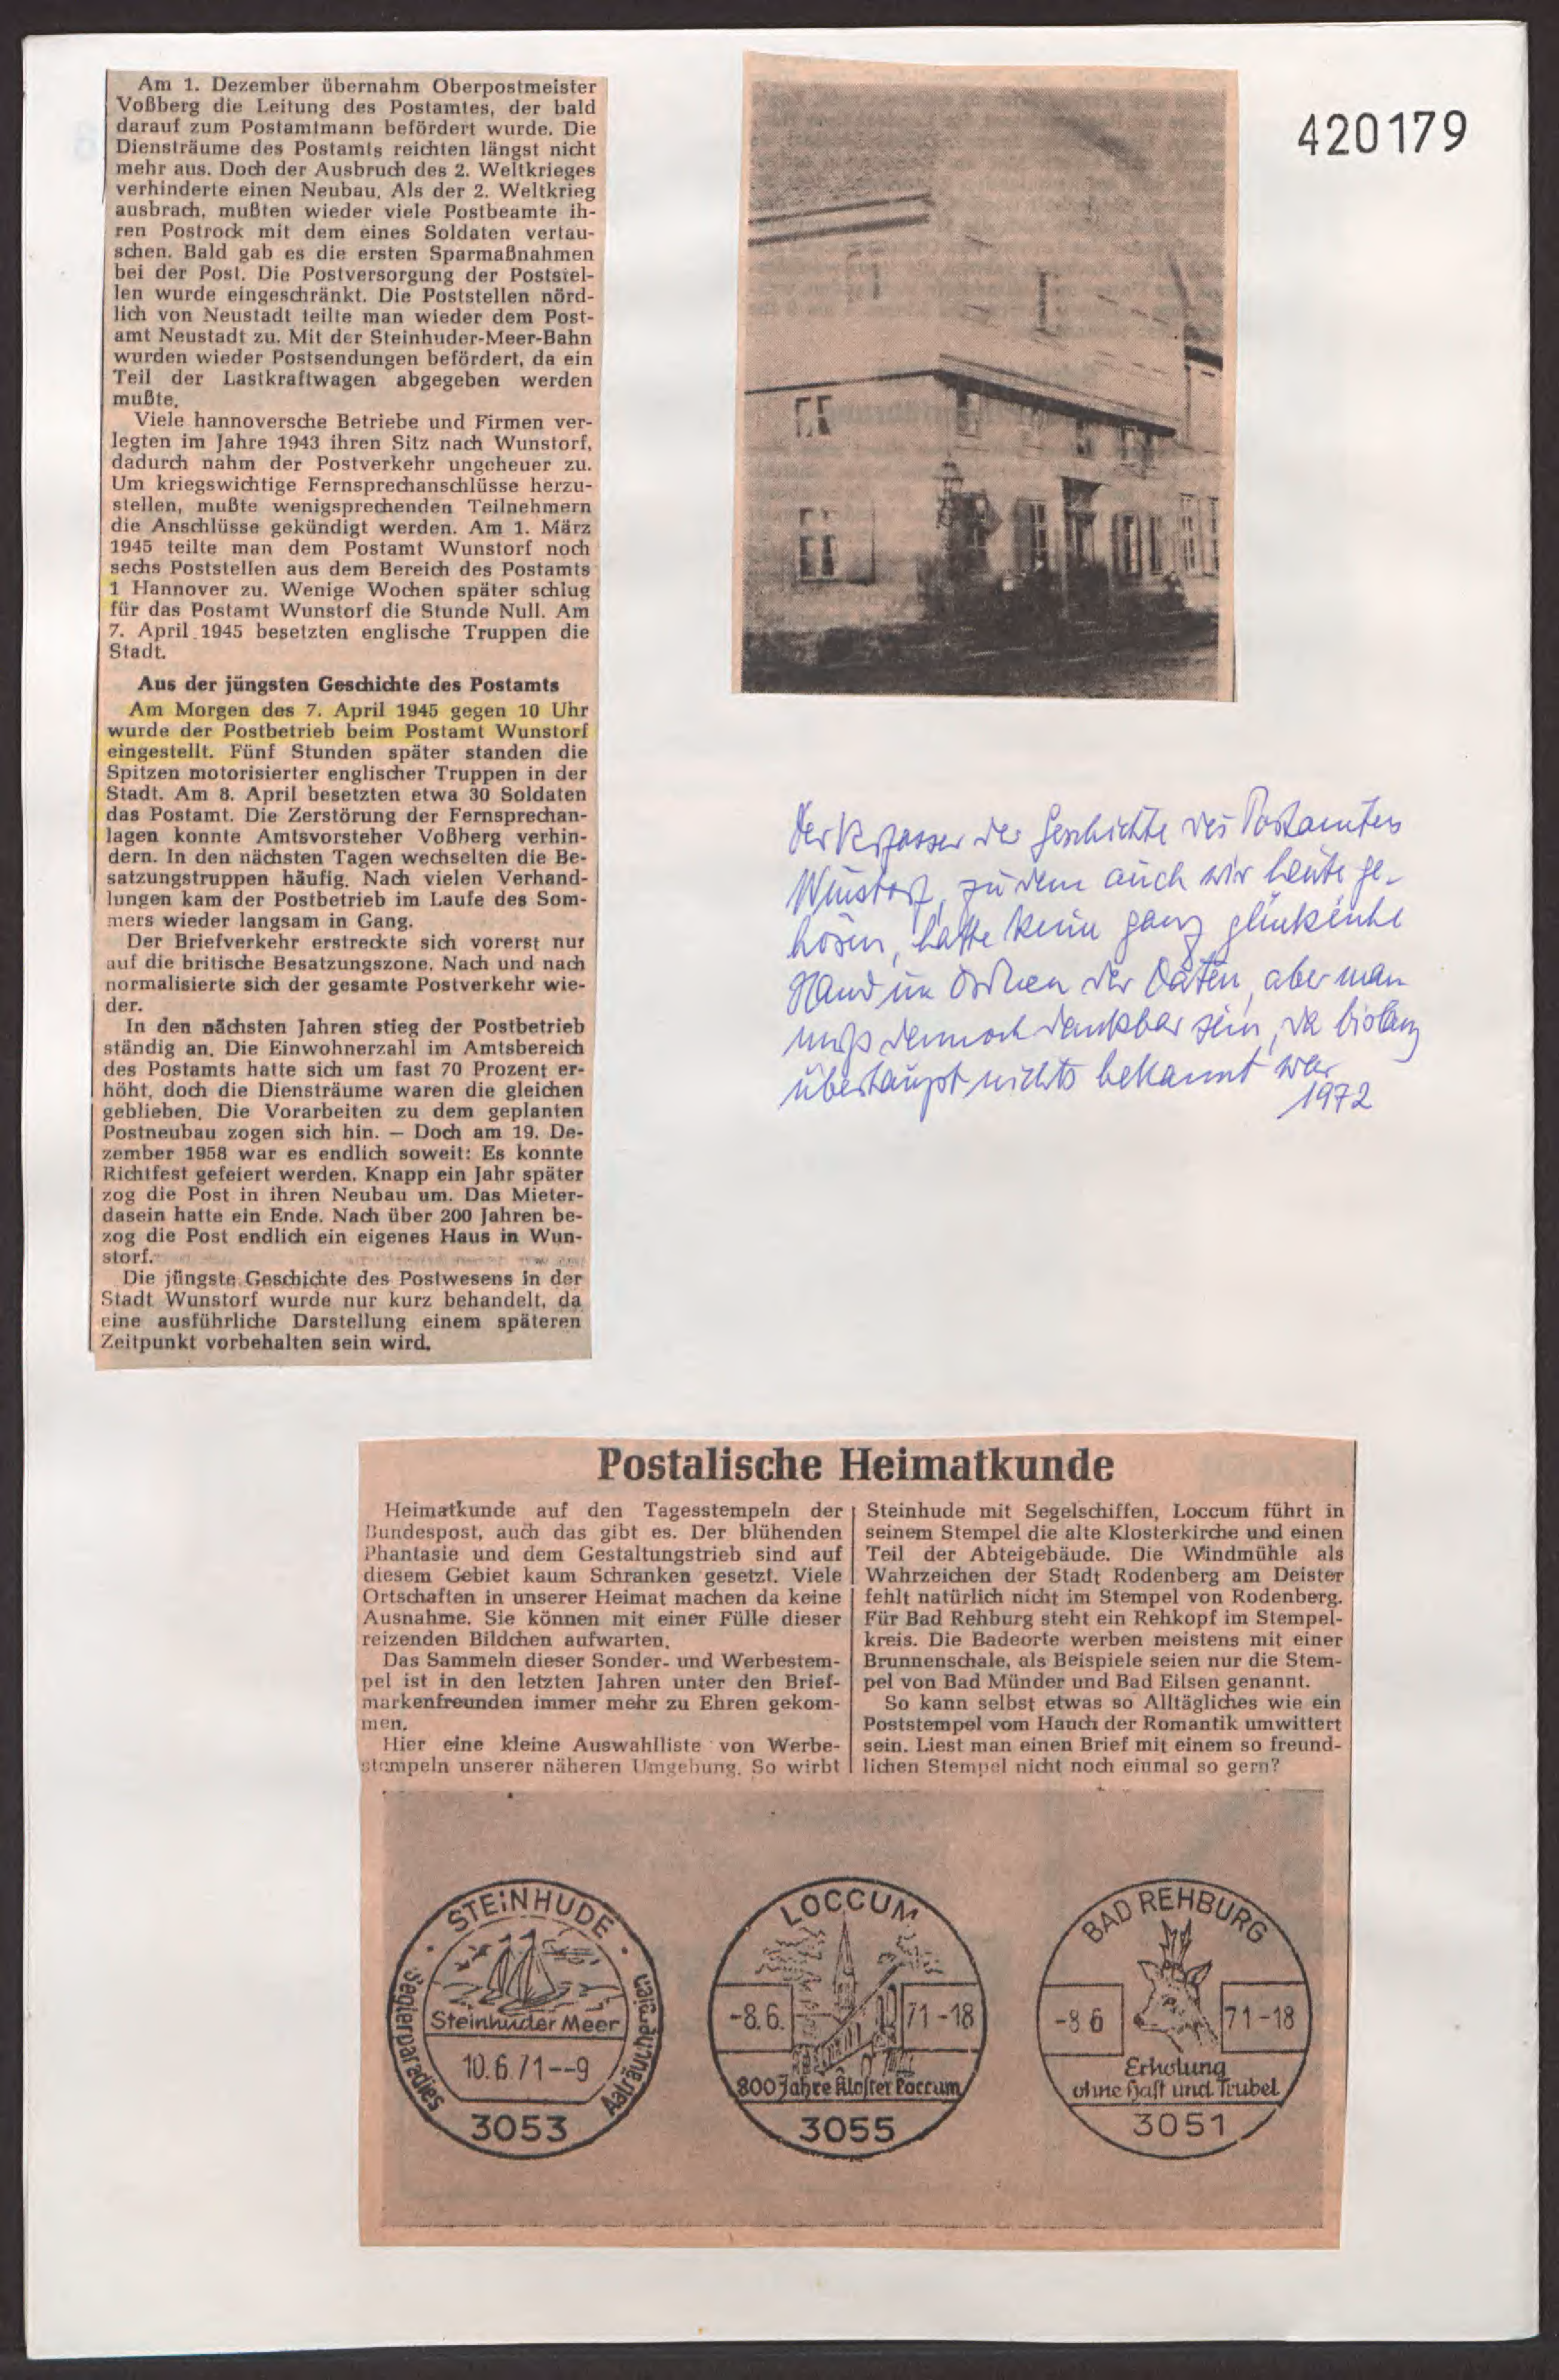 Am 1. Dezember übernahm Oberpostmeister
Voßberg die Leitung des Postamtes, der bald
darauf zum Postamtmann befördert wurde. Die
Diensträume des Postamts reichten längst nicht
mehr aus. Doch der Ausbruch des 2. Weltkrieges
verhinderte einen Neubau. Als der 2. Weltkrieg
ausbrach, mußten wieder viele Postbeamte ih-
ren Postrock mit dem eines Soldaten vertau-
schen. Bald gab es die ersten Sparmaßnahmen
bei der Post. Die Postversorgung der Poststel-
len wurde eingeschränkt. Die Poststellen nörd-
lich von Neustadt teilte man wieder dem Post-
amt Neustadt zu. Mit der Steinhuder-Meer-Bahn
wurden wieder Postsendungen befördert, da ein
Teil der Lastkraftwagen abgegeben werden
mußte.
Viele hannoversche Betriebe und Firmen ver-
legten im Jahre 1943 ihren Sitz nach Wunstorf,
dadurch nahm der Postverkehr ungeheuer zu.
Um kriegswichtige Fernsprechanschlüsse herzu-
stellen, mußte wenigsprechenden Teilnehmern
die Anschlüsse gekündigt werden. Am 1. März
1945 teilte man dem Postamt Wunstorf noch
sechs Poststellen aus dem Bereich des Postamts
1 Hannover zu. Wenige Wochen später schlug
für das Postamt Wunstorf die Stunde Null. Am
7. April 1945 besetzten englische Truppen die
Stadt.
Aus der jüngsten Geschichte des Postamts
Am Morgen des 7. April 1945 gegen 10 Uhr
wurde der Postbetrieb beim Postamt Wunstorf
eingestellt. Fünf Stunden später standen die
Spitzen motorisierter englischer Truppen in der
Stadt. Am 8. April besetzten etwa 30 Soldaten
das Postamt. Die Zerstörung der Fernsprechan-
lagen konnte Amtsvorsteher Voßberg verhin-
dern. In den nächsten Tagen wechselten die Be-
satzungstruppen häufig. Nach vielen Verhand-
lungen kam der Postbetrieb im Laufe des Som-
mers wieder langsam in Gang.
Der Briefverkehr erstreckte sich vorerst nur
auf die britische Besatzungszone. Nach und nach
normalisierte sich der gesamte Postverkehr wie-
der.
In den nächsten Jahren stieg der Postbetrieb
ständig an. Die Einwohnerzahl im Amtsbereich
des Postamts hatte sich um fast 70 Prozent er-
höht, doch die Diensträume waren die gleichen
geblieben. Die Vorarbeiten zu dem geplanten
Postneubau zogen sich hin. — Doch am 19. De-
zember 1958 war es endlich soweit: Es konnte
Richtfest gefeiert werden. Knapp ein Jahr später
zog die Post in ihren Neubau um. Das Mieter-
dasein hatte ein Ende. Nach über 200 Jahren be-
zog die Post endlich ein eigenes Haus in Wun-
storf.
Die jüngste Geschichte des Postwesens in der
Stadt Wunstorf wurde nur kurz behandelt, da
eine ausführliche Darstellung einem späteren
Zeitpunkt vorbehalten sein wird.
420179
Der Verfasser der Geschichte des Postamtes
Wunstorf, zu dem auch wir heute ge-
hören, hatte keine ganz glückliche
Hand im Ordnen der Daten, aber man
muß dennoch dankbar sein, da bislang
überhaupt nichts bekannt war
1972
Postalische Heimatkunde
Heimatkunde auf den Tagesstempeln der
Bundespost, auch das gibt es. Der blühenden
Phantasie und dem Gestaltungstrieb sind auf
diesem Gebiet kaum Schranken gesetzt. Viele
Ortschaften in unserer Heimat machen da keine
Ausnahme. Sie können mit einer Fülle dieser
reizenden Bildchen aufwarten.
Das Sammeln dieser Sonder- und Werbestem-
pel ist in den letzten Jahren unter den Brief-
markenfreunden immer mehr zu Ehren gekom-
men.
Hier eine kleine Auswahlliste von Werbe-
stempeln unserer näheren Umgebung. So wirbt
Steinhude mit Segelschiffen, Loccum führt in
seinem Stempel die alte Klosterkirche und einen
Teil der Abteigebäude. Die Windmühle als
Wahrzeichen der Stadt Rodenberg am Deister
fehlt natürlich nicht im Stempel von Rodenberg.
Für Bad Rehburg steht ein Rehkopf im Stempel-
kreis. Die Badeorte werben meistens mit einer
Brunnenschale, als Beispiele seien nur die Stem-
pel von Bad Münder und Bad Eilsen genannt.
So kann selbst etwas so Alltägliches wie ein
Poststempel vom Hauch der Romantik umwittert
sein. Liest man einen Brief mit einem so freund-
lichen Stempel nicht noch einmal so gern?
STEINHUDE
Seglerparadies
Aalräuchereien
Steinhuder Meer
10.6.71--9
3053
LOCCUM
-8.6. 71-18
800 Jahre Kloster Loccum
3055
BAD REHBURG
-8 6 71-18
Erholung
ohne Hast und Trubel
3051